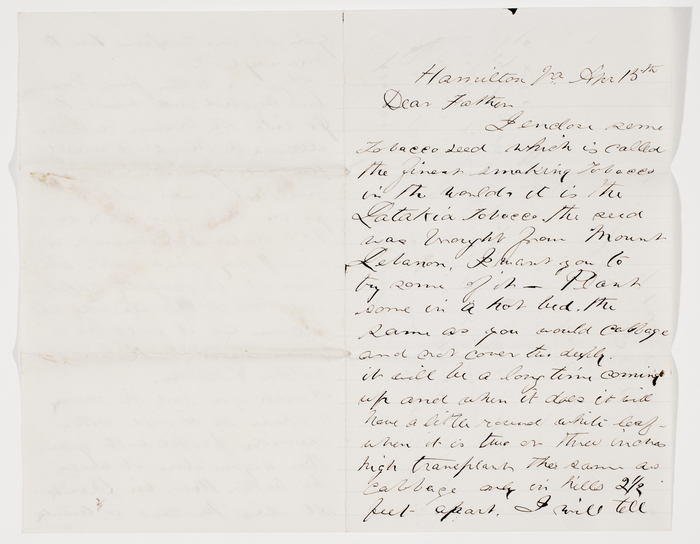 Hamilton Ja Apr 15th
Dear Father
I enclose some
Tobacco seed which is called
the finest smoking Tobacco
in the world. it is the
Latakia Tobacco. the seed
was brought from Mount
Lebanon. I want you to
try some of it — Plant
some in a hot bed. the
same as you would cabbage
and not cover too deeply.
it will be a long time coming
up and when it does it will
have a little round white leaf-
when it is two or three inches
high transplant the same as
Cabbage only in hills 2 1/2
feet apart. I will tell